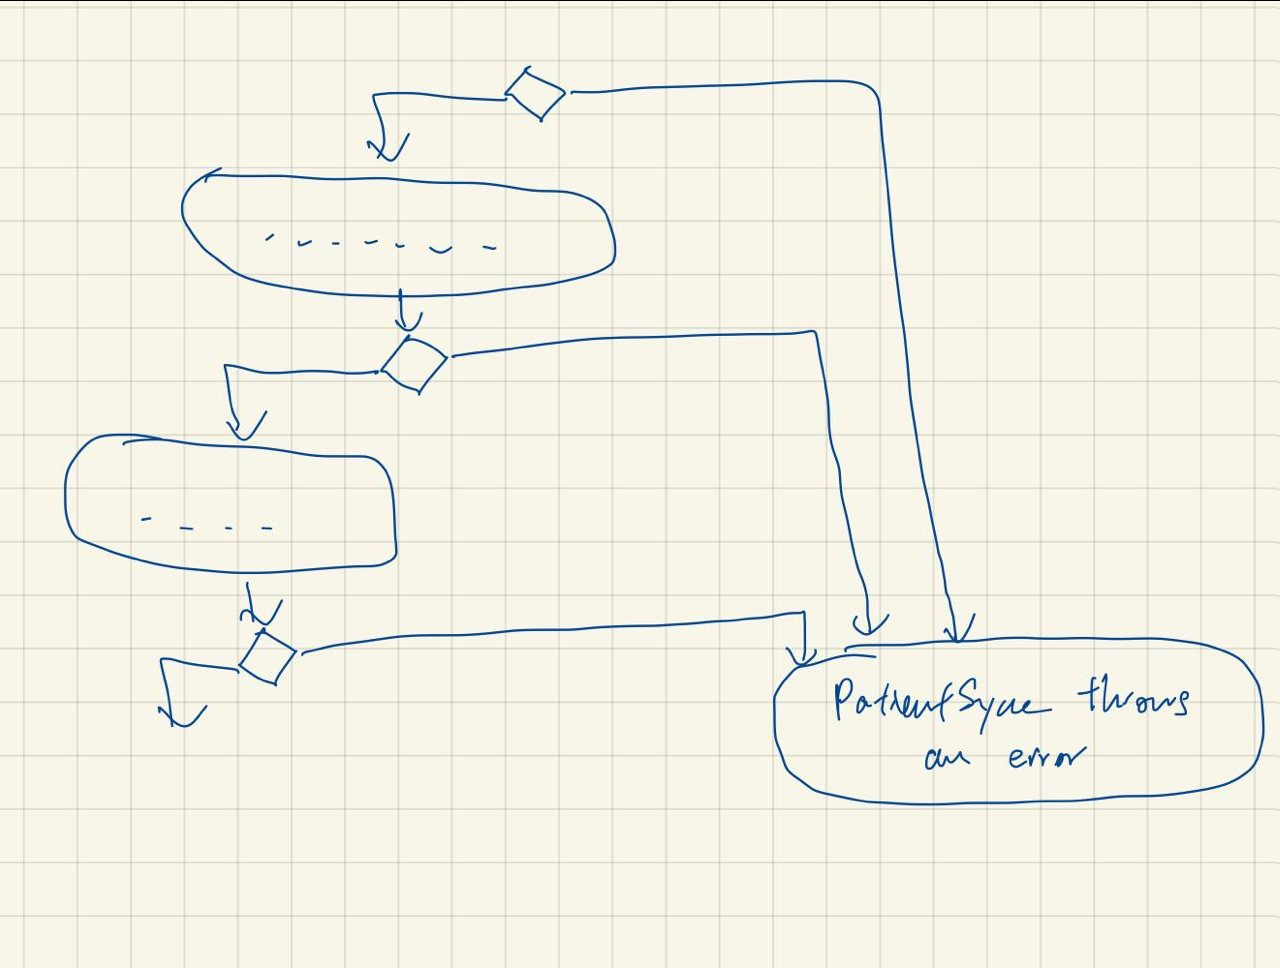 PatientSync throws
an error